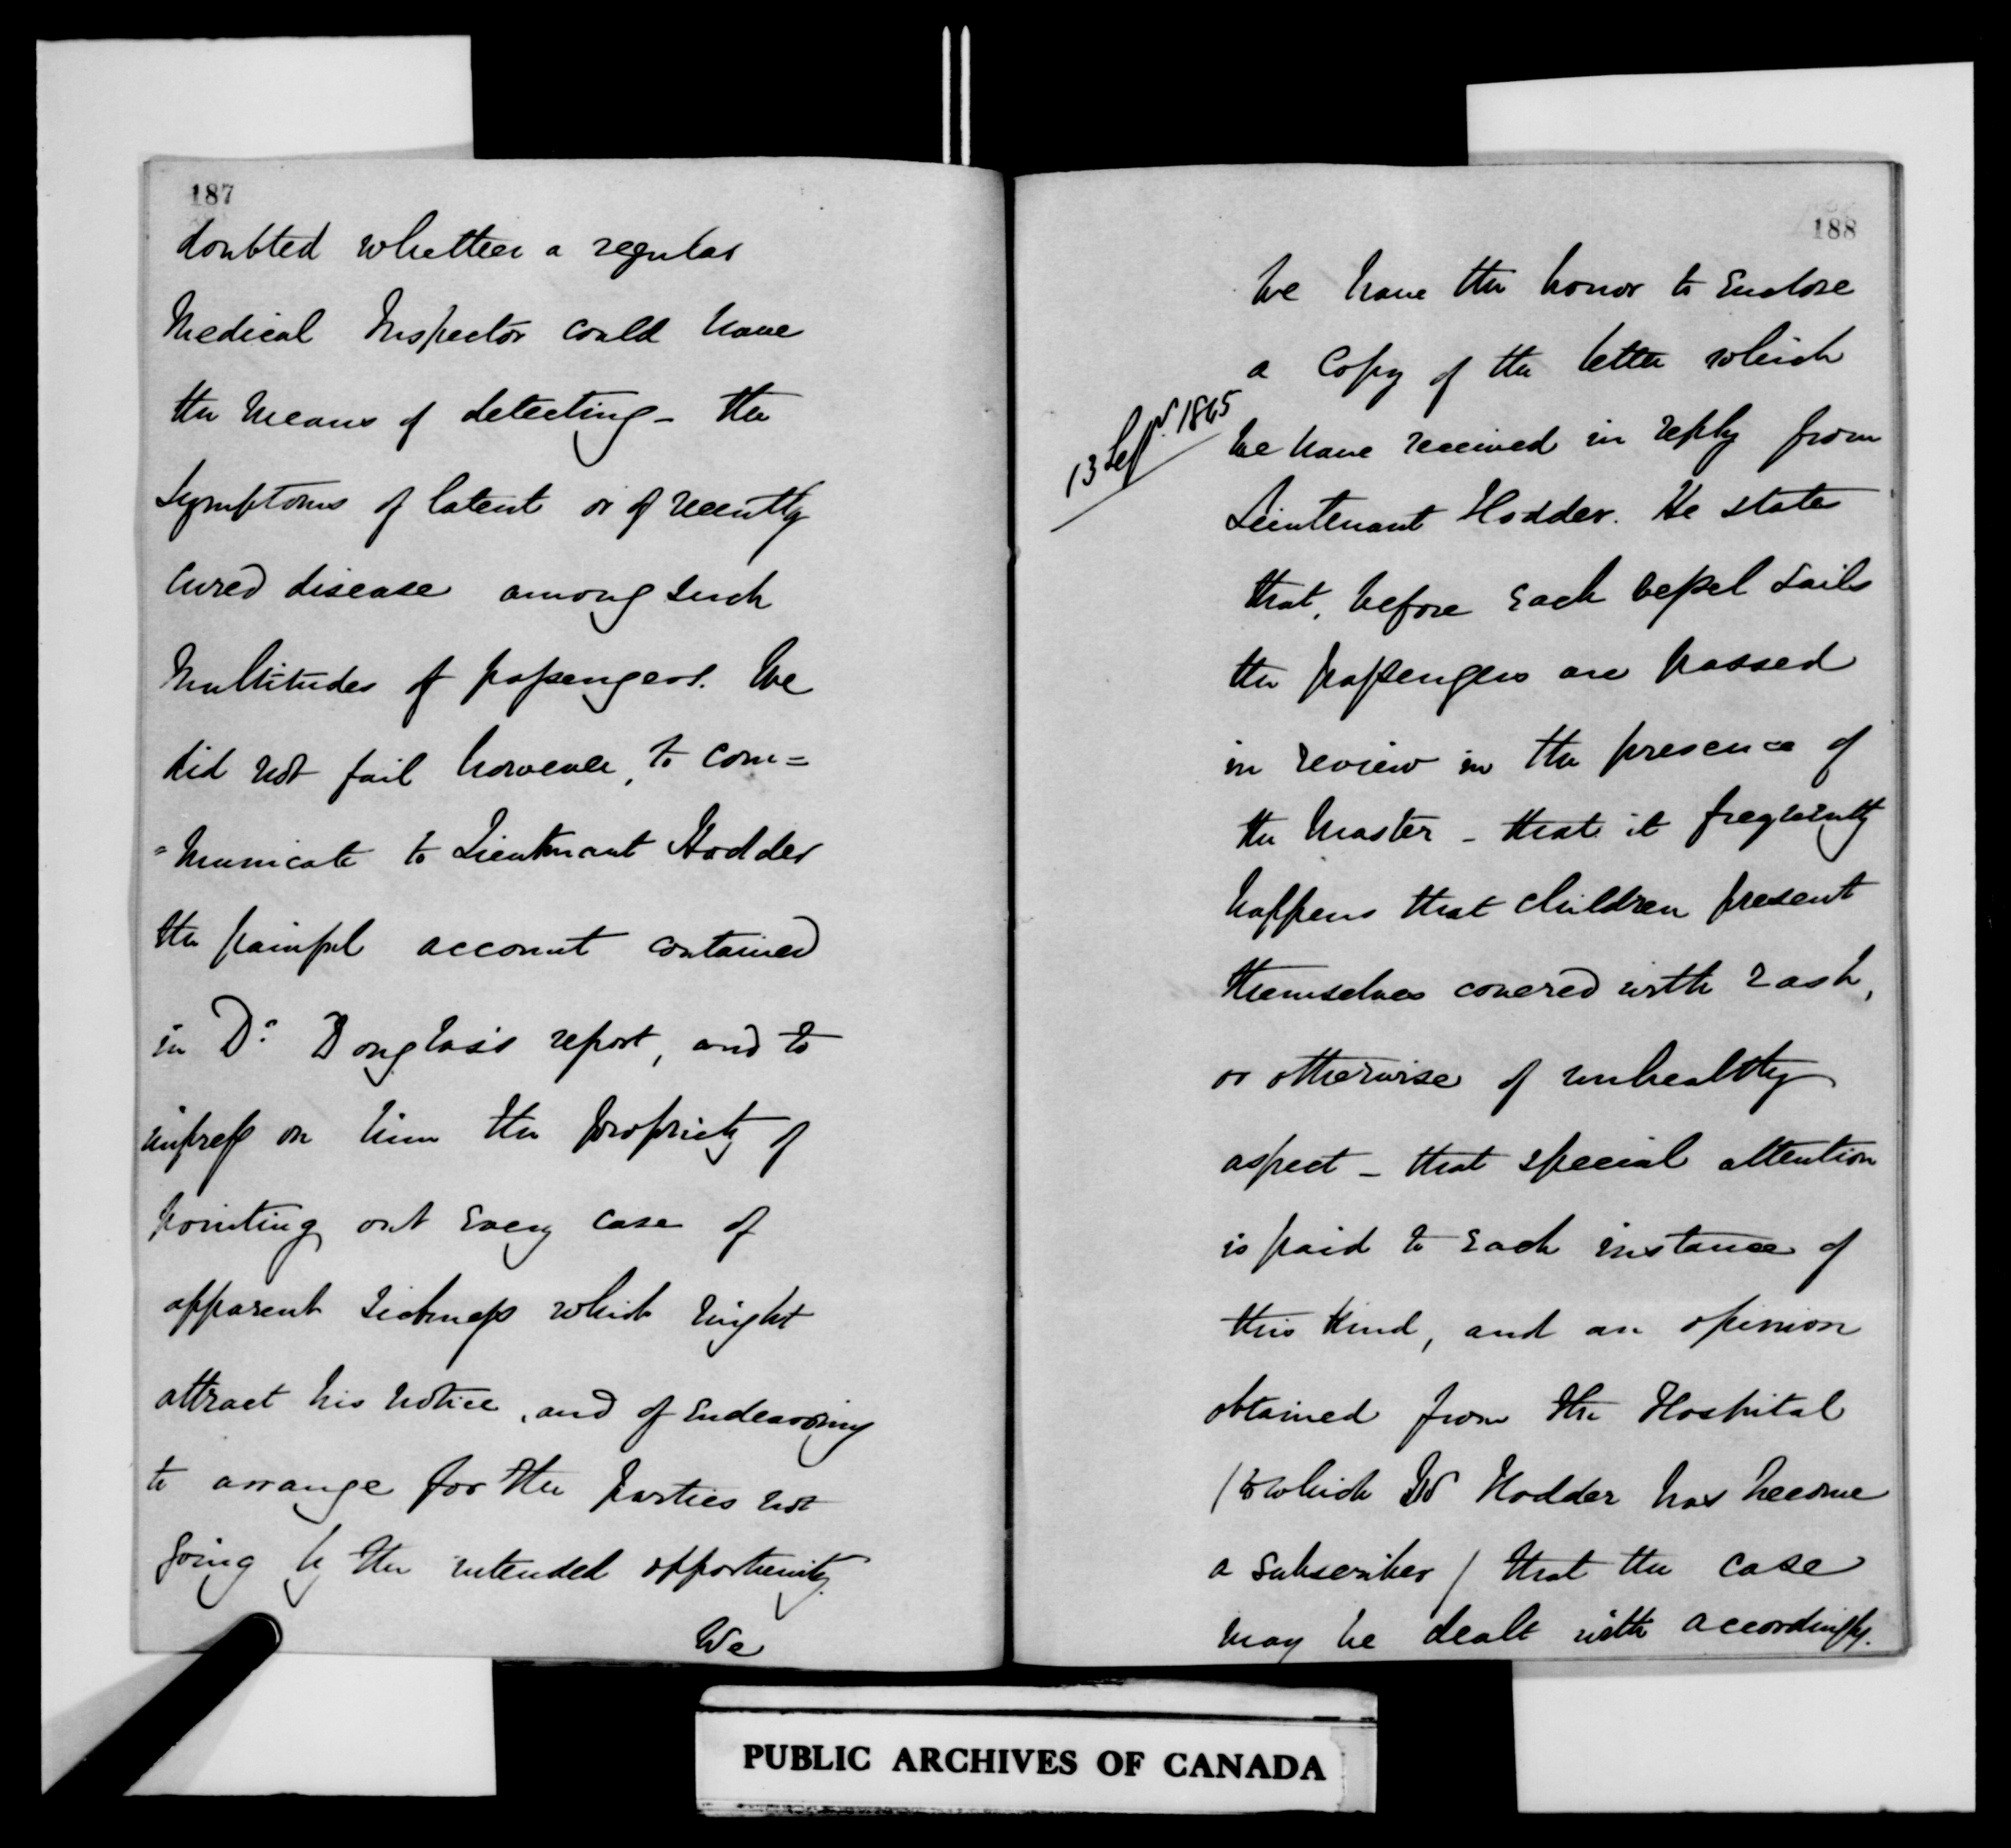 187
doubted whether a regular
Medical Inspector could have
the means of detecting - the
symptoms of latent or of recently
cured disease among such
multitudes of passengers. We
did not fail however, to com=
=municate to Lieutenant Hodder
the painful account contained
in Dr Douglas's report, and to
impress on him the propriety of
pointing out every case of
apparent sickness which might
attract his notice, and of endeavoring
to arrange for the parties not
going by the intended opportunity.
We
188
We have the honor to enclose
a copy of the letter which
13 Sepr 1865
we have received in reply from
Lieutenant Hodder. He states
that, before each vessel sails
the passengers are passed
in review in the presence of
the Master - that it frequently
happens that children present
themselves covered with rash,
or otherwise of unhealthy
aspect - that special attention
is paid to each instance of
this kind, and an opinion
obtained from the Hospital
(to which Lt Hodder has become
a subscriber) that the case
may be dealt with accordingly.
PUBLIC ARCHIVES OF CANADA